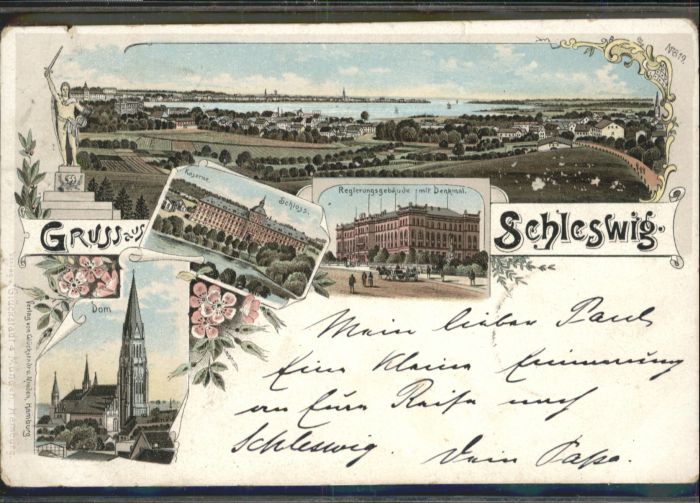 No 819.
Kaserne.
Schloss.
Regierungsgebäude mit Denkmal.
Gruss aus
Schleswig.
Dom
Verlag von Glückstadt & Münden, Hamburg
Mein lieber Paul
Eine kleine Erinnerung
an Eure Reise nach
Schleswig. Dein Papa.